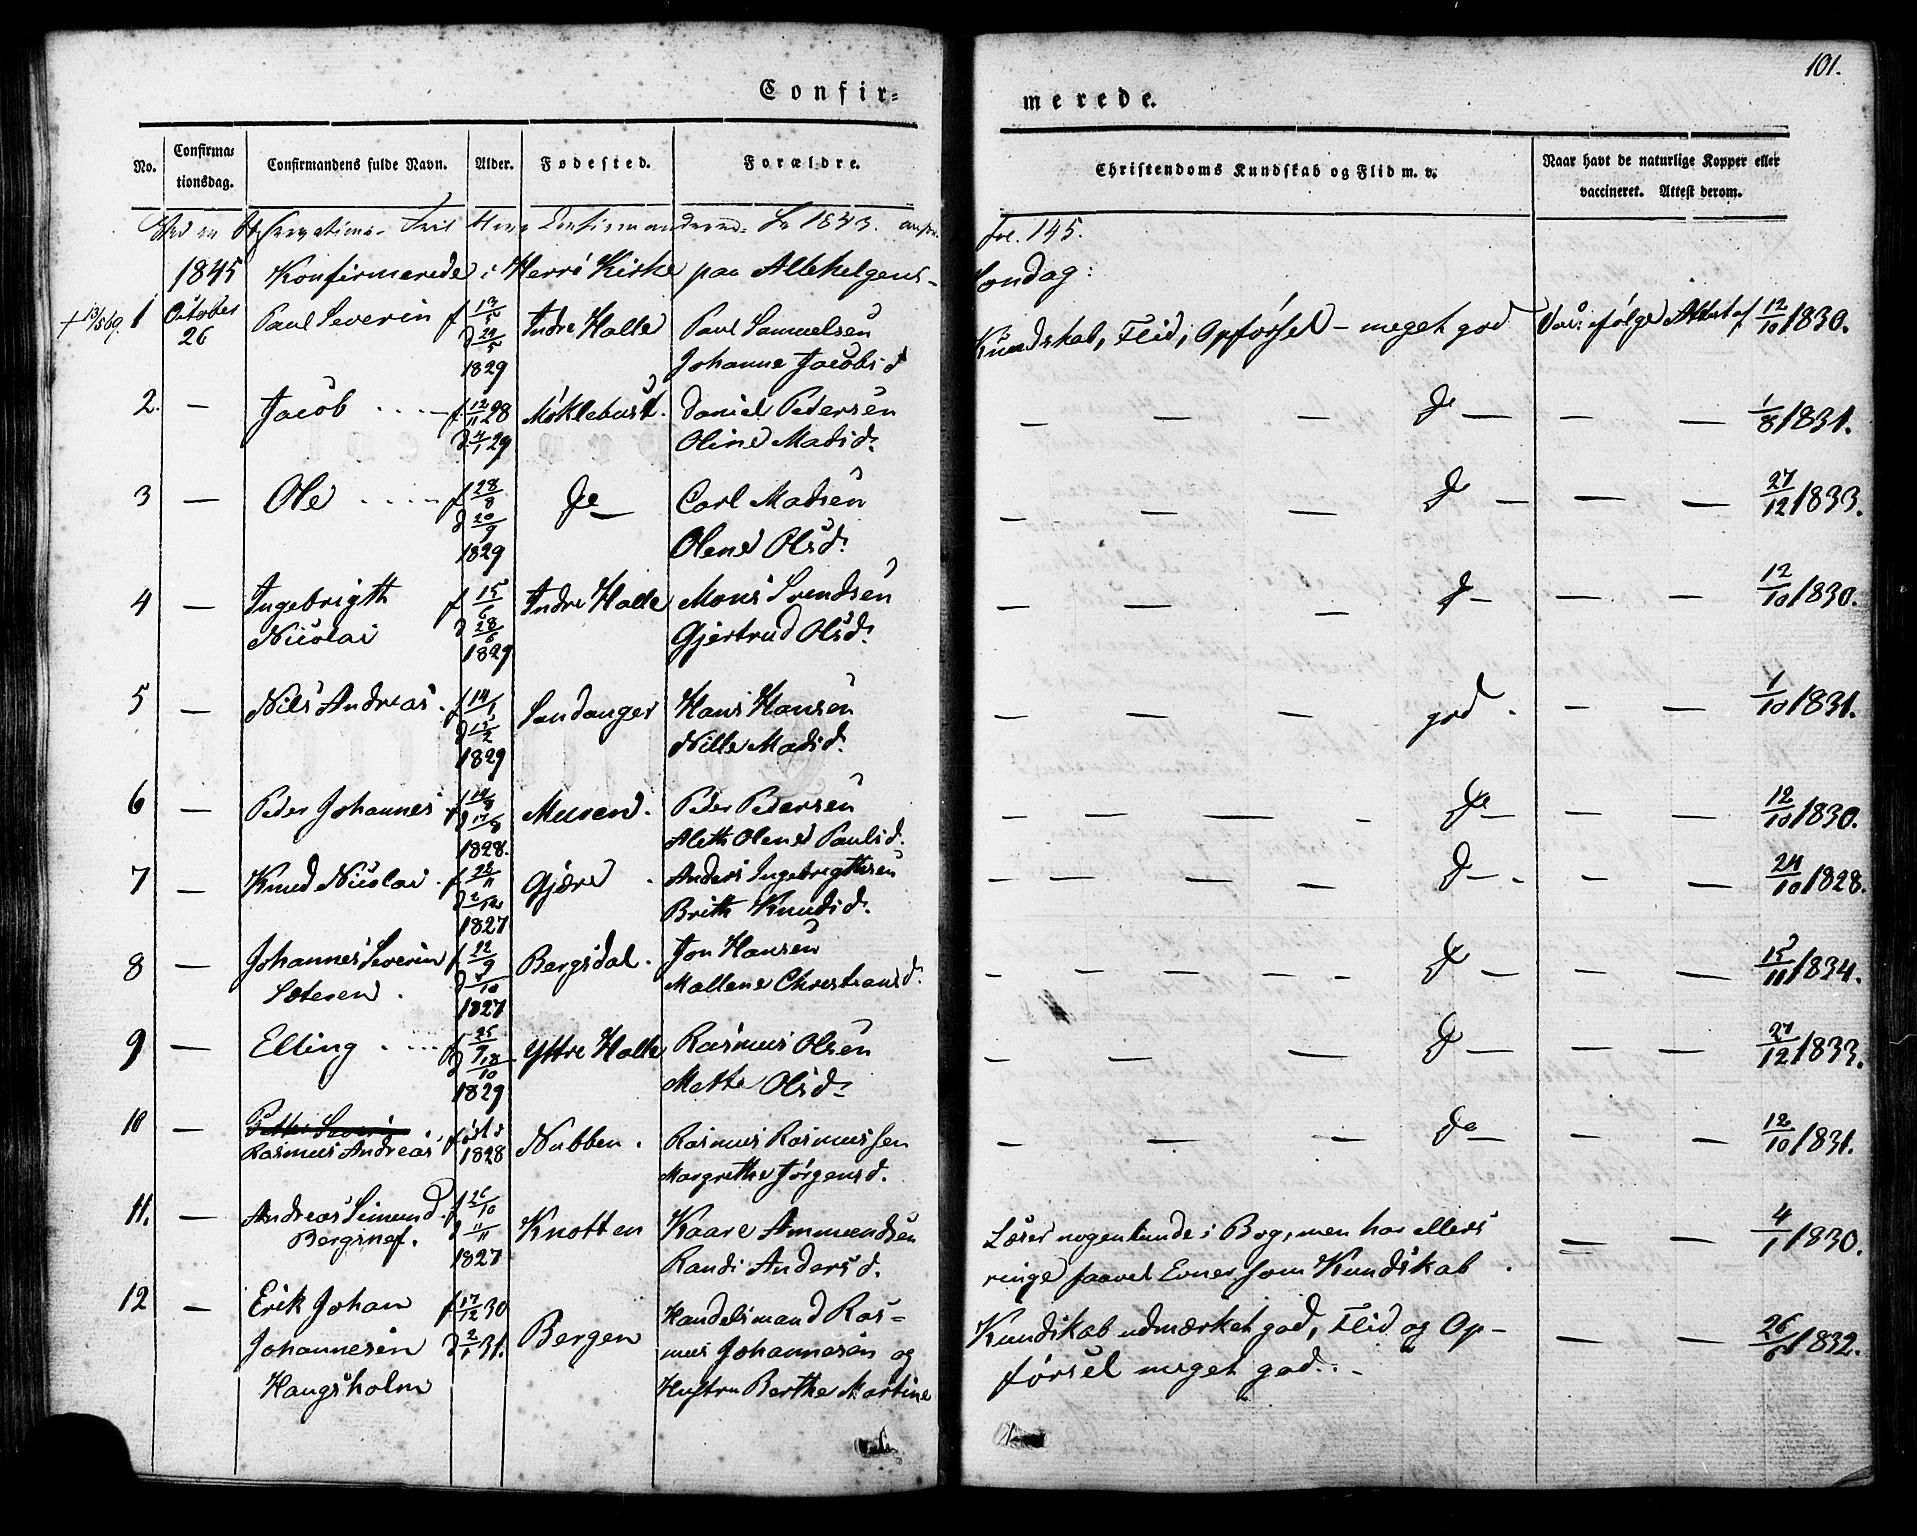 101.
Confir-
merede.
No.
Confirma-
tionsdag.
Confirmandens fulde Navn.
Alder.
Fødested.
Forældre.
Christendoms Kundskab og Flid m. v.
Naar havt de naturlige Kopper eller
vaccineret. Attest derom.
Confirmanderne 1843. fol. 145.
1845 Konfirmerede i Herrö Kirke paa Allehelgens-
Søndag:
1 October 26 Paul Severin f 13/5 d 24/5 1829 Indre Halle Paul Samuelsen
Johanne Jacobsd
Kundskab, Flid, Opførsel - meget god Vac: ifølge Attest af 12/10 1830.
2. — Jacob f 12/11 28 Møklebust. Daniel Pedersen
d 4/1 29 Oline Madsd.
— — — do — — — 1/8 1831.
3 — Ole f 28/8 do — Carl Madsen
d 20/9 1829 Olene Olsd.
— — — do — — — 27/12 1833.
4 — Ingebrigth f 15/6 Indre Halle Mons Svendsen
Nicolai d 28/6 1829 Gjertrud Olsd.
— — — do — — — 12/10 1830.
5 — Nils Andreas. f 14/1 Sandanger Hans Hansen
d 15/2 1829 Nille Madsd.
— — — god. — — 1/10 1831.
6 — Peder Johannes f 14/8 Muren. Peder Pedersen
d 17/8 1828. Aleth Olene Paulsd.
— — — - do — — — 12/10 1830.
7 — Knud Nicolai. f 22/11 Gjære. Anders Ingebrigthsen
d 2/12 1827 Brith Knudsd.
— — — — do — . — — 24/10 1828.
8 — Johannes Severin f 22/9 Bergsdal. Jon Hansen
Sætesen. d 5/10 1827 Mallene Christiansd.
— — — — — do — — — 15/11 1834.
9 — Elling f 25/9 Yttre Halle Rasmus Olsen
d 18/10 1829 Mette Olsd.
— — — do — — — 27/12 1833.
10 — Petter Severin
Rasmus Andreas født 1828 Nubben. Rasmus Rasmussen
Margrethe Jørgensd.
— — — do — — — 12/10 1831.
11. — Andreas Simund. f 26/10 Knotten Kaare Ammundsen
Bergsnes. d 11/11 1827 Randi Andersd.
Læser nogenlunde i Bog, men har ellers — — 4/1 1830.
ringe saavel Evner som Kundskab.
12 — Erik Johan f 17/12 30 Bergen Handelsmand Ras-
Johannesen d 2/1 31. mus Johannesen og
Haugsholm Hustru Berthe Martine
Kundskab udmærket god, Flid og Op- — — 26/6 1832.
førsel meget god.